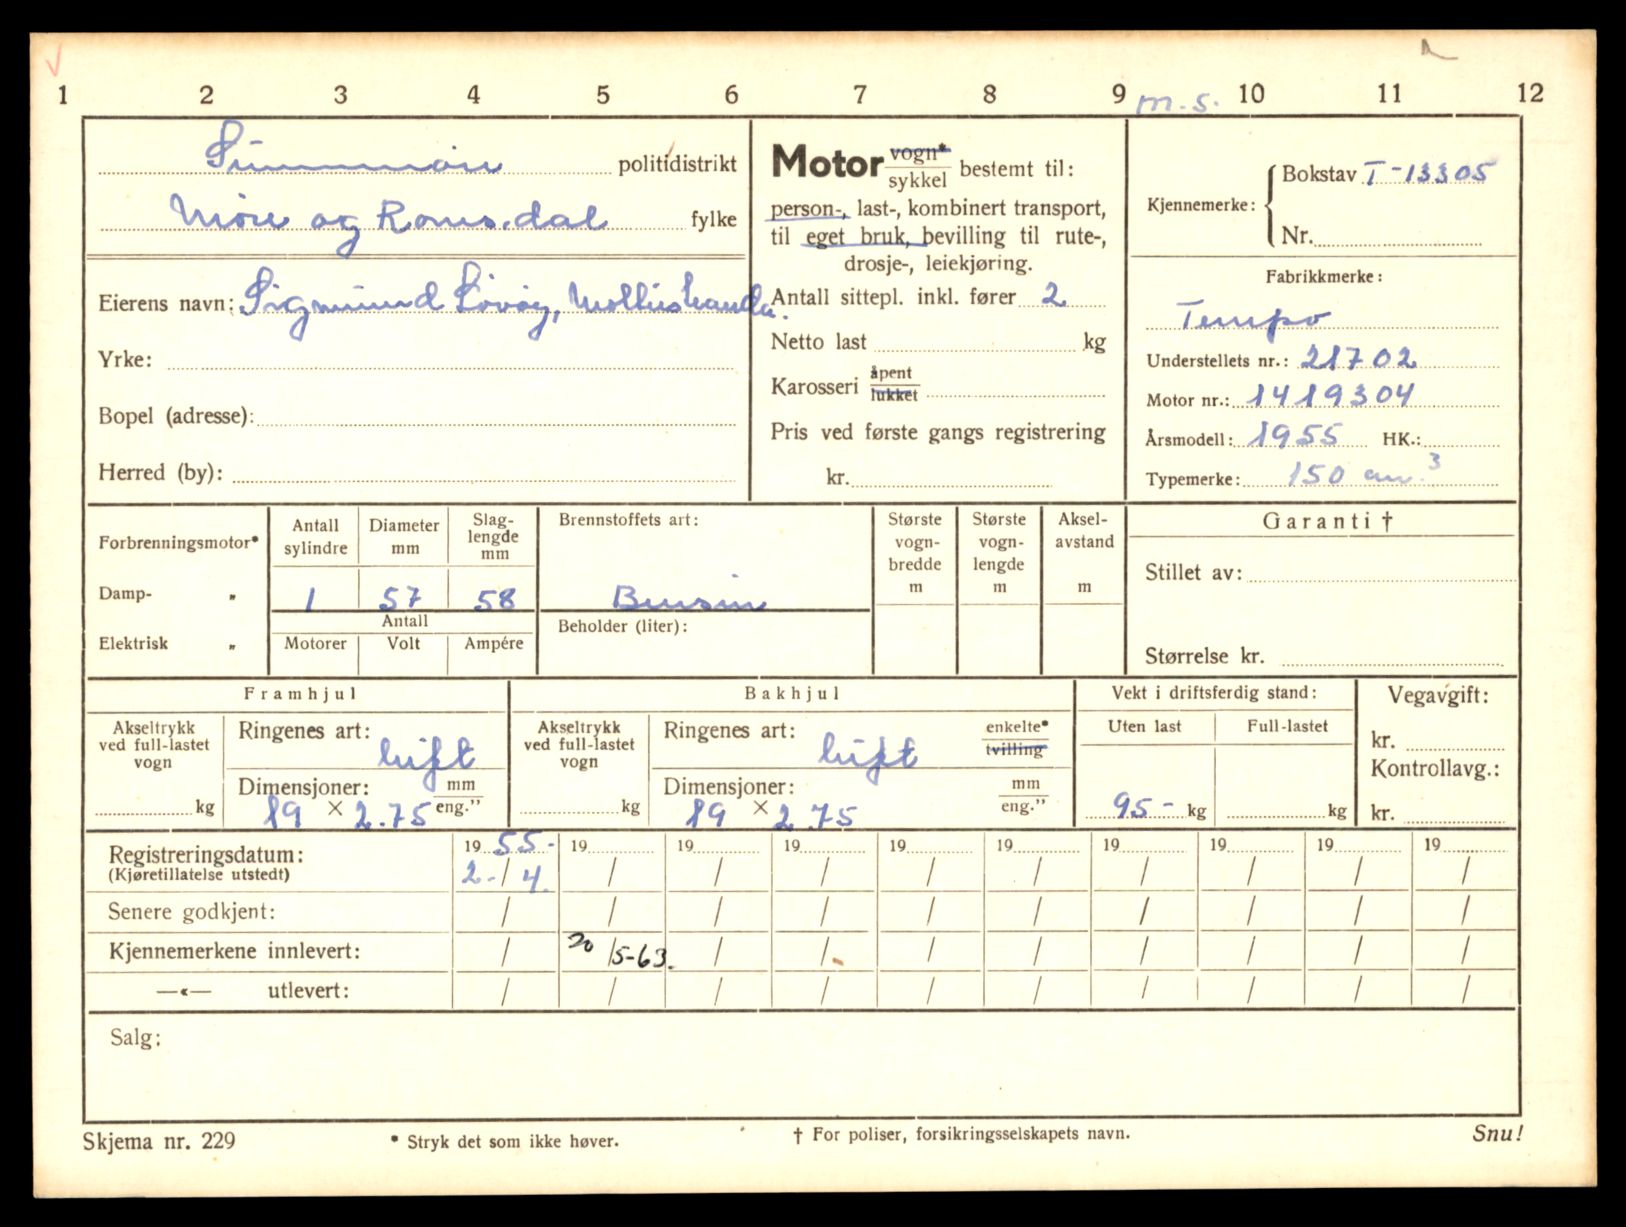 1 2 3 4 5 6 7 8 9 m.s. 10 11 12
Sunnmøre politidistrikt
Møre og Romsdal fylke
Eierens navn: Sigmund Løvøy,
Yrke:
Bopel (adresse):
Herred (by):
Motor vogn* sykkel bestemt til:
person-, last-, kombinert transport,
til eget bruk, bevilling til rute-,
drosje-, leiekjøring.
Antall sittepl. inkl. fører 2
Netto last kg
Karosseri åpent lukket
Pris ved første gangs registrering
kr.
Kjennemerke: Bokstav T-13305
Nr.
Fabrikkmerke:
Tempo
Understellets nr.: 21702
Motor nr.: 1419304
Årsmodell: 1955 HK.:
Typemerke: 150 cm.³
Forbrenningsmotor*
Damp- „
Elektrisk „
Antall sylindre
1
Diameter mm
57
Slag-lengde mm
58
Antall
Motorer Volt Ampére
Brennstoffets art:
Bensin
Beholder (liter):
Største vogn-bredde m
Største vogn-lengde m
Aksel-avstand m
Garanti †
Stillet av:
Størrelse kr.
Framhjul
Akseltrykk ved full-lastet vogn
kg
Ringenes art: luft
Dimensjoner: mm eng.”
19 × 2.75
Bakhjul
Akseltrykk ved full-lastet vogn
kg
Ringenes art: luft enkelte* tvilling
Dimensjoner: mm eng.”
19 × 2.75
Vekt i driftsferdig stand:
Uten last Full-lastet
95- kg kg
Vegavgift:
kr.
Kontrollavg.:
kr.
Registreringsdatum: 1955- 19 19 19 19 19 19 19 19 19
(Kjøretillatelse utstedt) 2-/4. / / / / / / / / /
Senere godkjent: / / / / / / / / / /
Kjennemerkene innlevert: / 20/5-63. / / / / / / / /
—«— utlevert: / / / / / / / / / /
Salg:
Skjema nr. 229 * Stryk det som ikke høver. † For poliser, forsikringsselskapets navn. Snu!